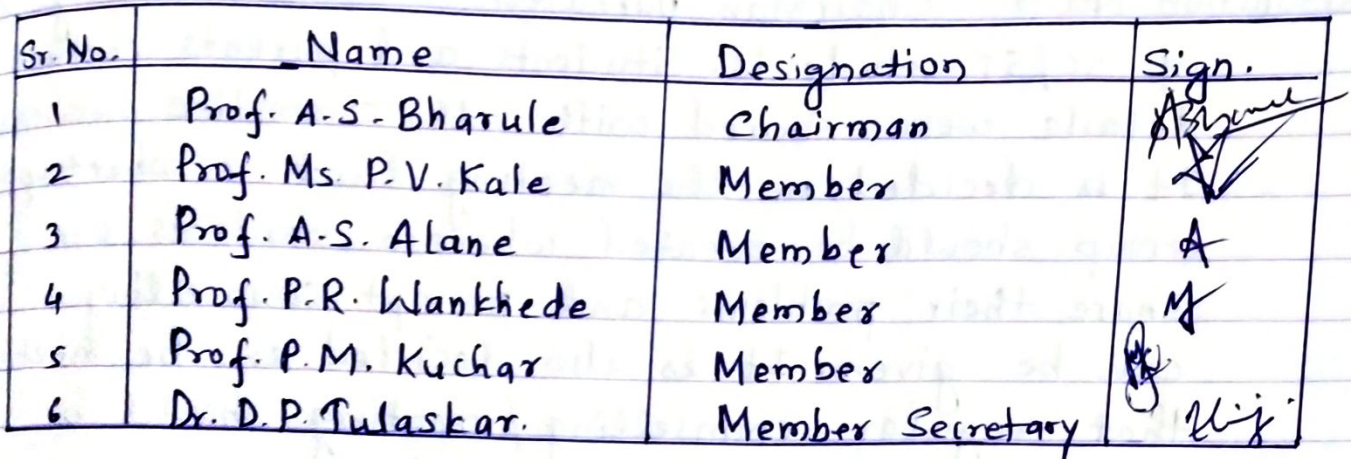 Sr. No. Name Designation Sign.
1 Prof. A.S. Bharule Chairman
2 Prof. Ms. P.V. Kale Member
3 Prof. A.S. Alane Member
4 Prof. P.R. Wankhede Member
5 Prof. P.M. Kuchar Member
6 Dr. D.P. Tulaskar. Member Secretary